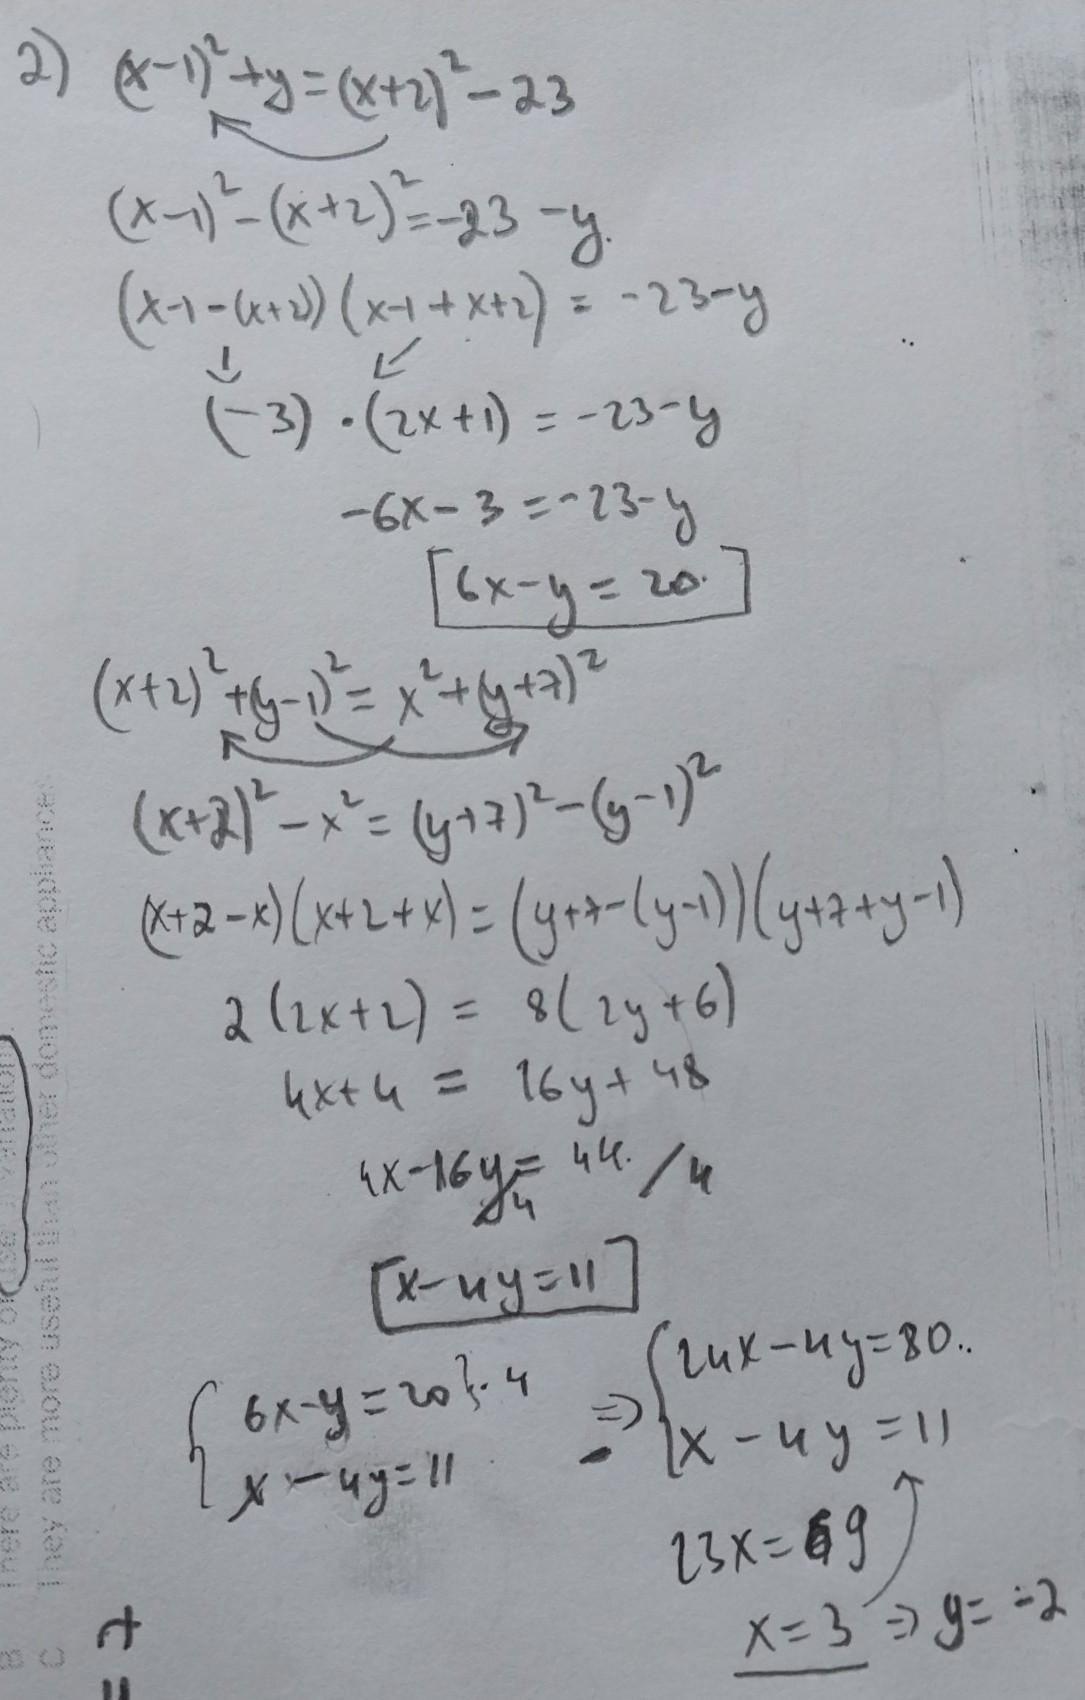 2) (x-1)²+y=(x+2)²-23
(x-1)²-(x+2)²=-23-y.
(x-1-(x+2))(x-1+x+2)=-23-y
(-3)·(2x+1)=-23-y
-6x-3=-23-y
[6x-y=20.]
(x+2)²+(y-1)²=x²+(y+7)²
(x+2)²-x²=(y+7)²-(y-1)²
(x+2-x)(x+2+x)=(y+7-(y-1))(y+7+y-1)
2(2x+2)=8(2y+6)
4x+4=16y+48
4x-16y=44./4
[x-4y=11]
{6x-y=20}·4
x-4y=11
=> {24x-4y=80..
x-4y=11
23x=69
x=3 => y=-2
There are plenty of
C They are more useful than other domestic appliances
B